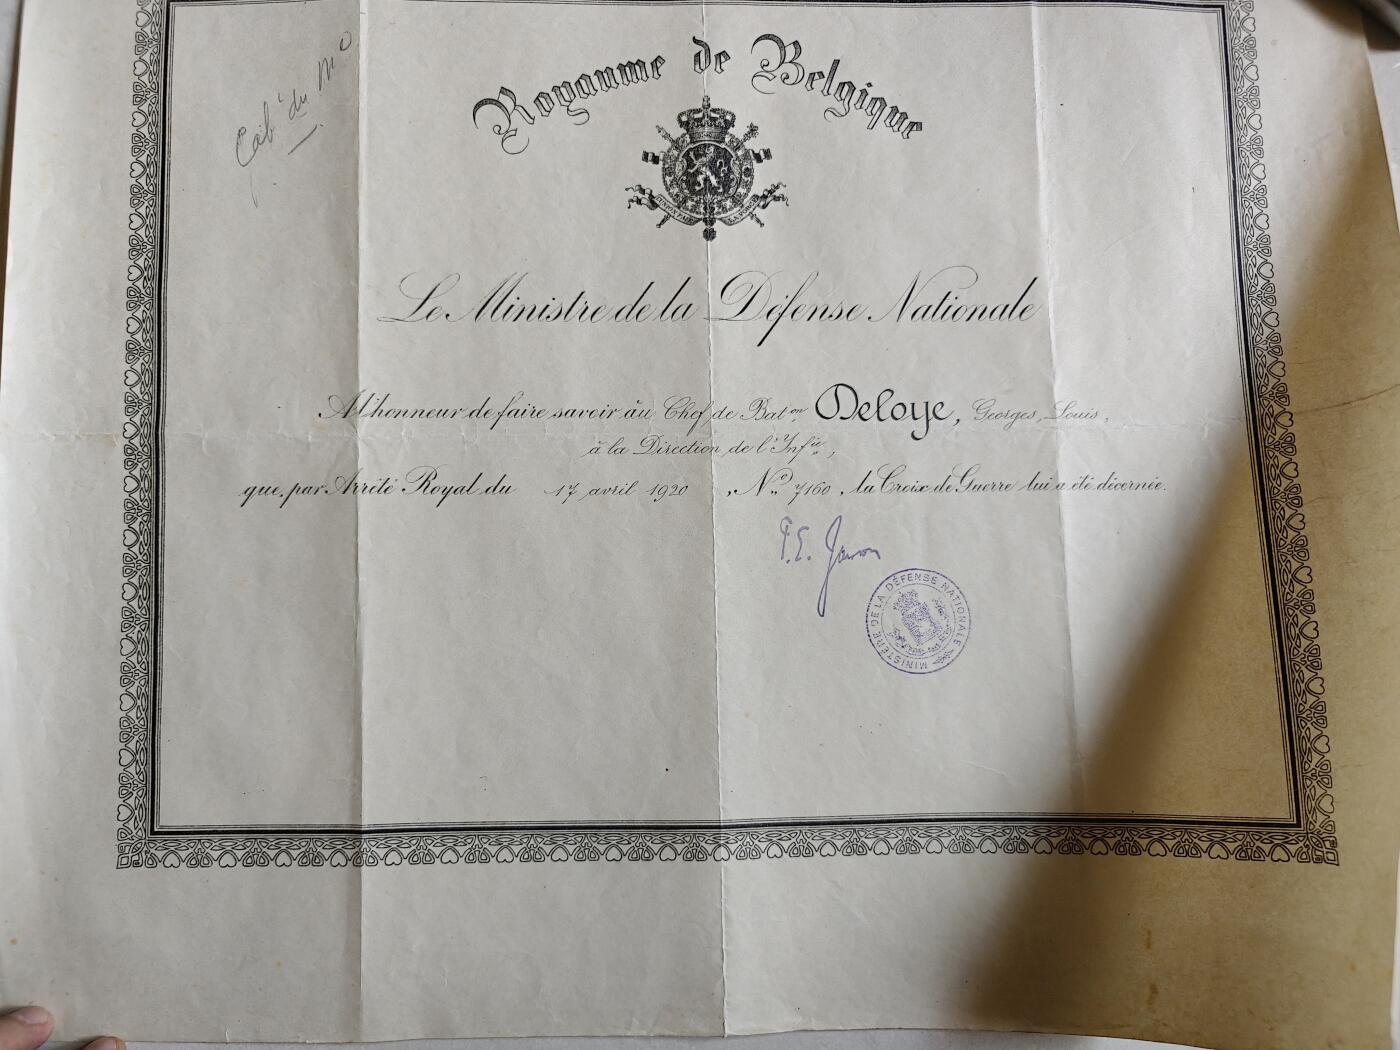 Cab^t du M^o
Royaume de Belgique
Le Ministre de la Défense Nationale
A l'honneur de faire savoir au Chef de Bat^on Deloye, Georges, Louis,
à la Direction de l'Inf^ie,
que, par Arrêté Royal du 17 avril 1920, N° 7160, la Croix de Guerre lui a été décernée.
P.E. Janson
MINISTÈRE DE LA DÉFENSE NATIONALE